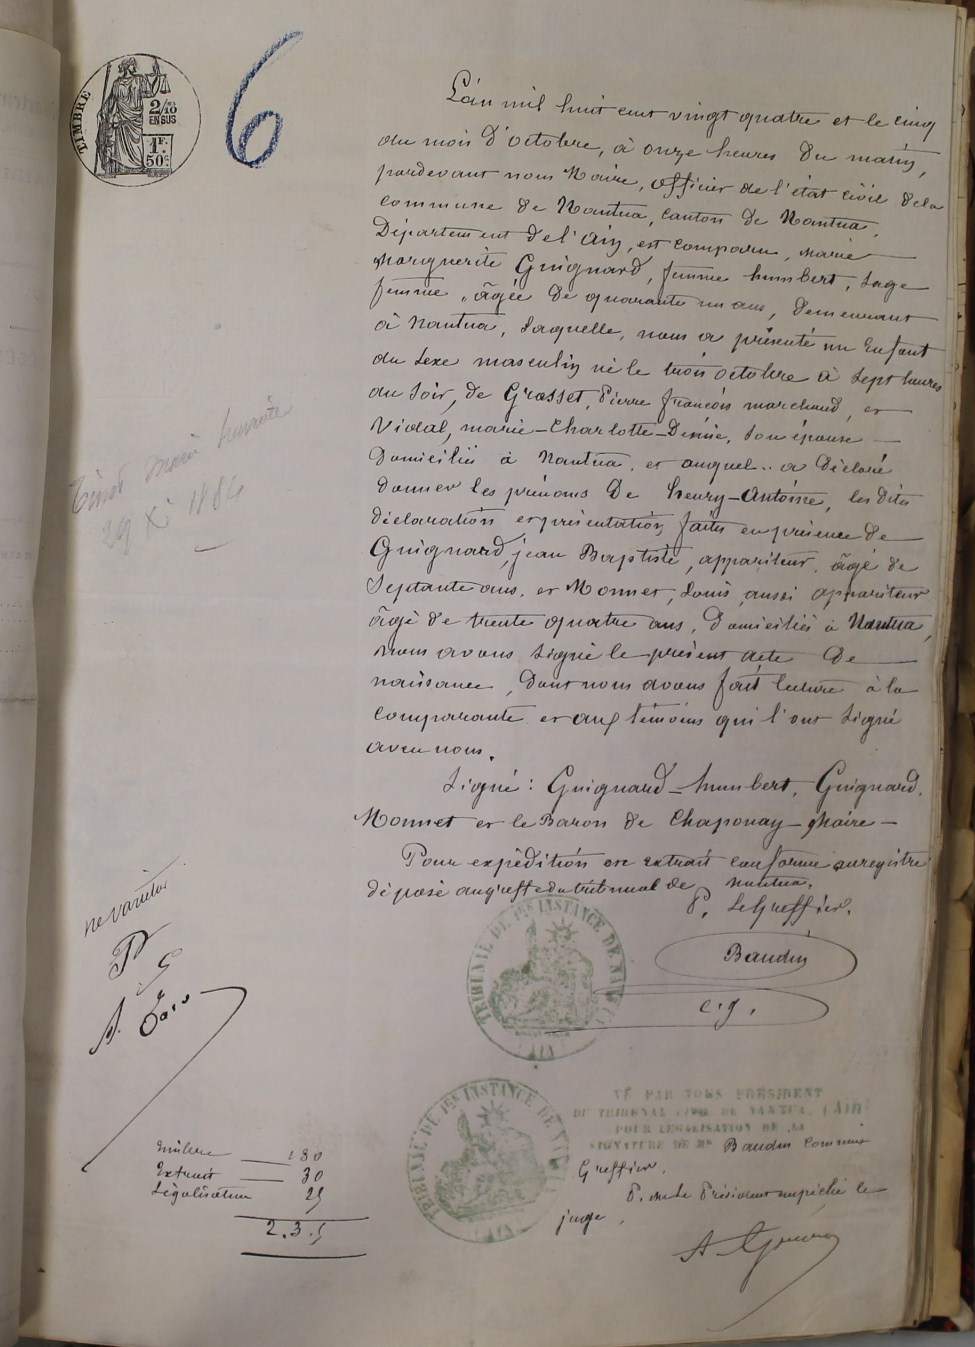 TIMBRE
2/10
EN SUS
1F.
50c.
6
L'an mil huit cent vingt quatre et le cinq
du mois d'octobre, à onze heures du matin,
pardevant nous Maire, officier de l'état civil dela
commune de Nantua, canton de Nantua,
Département de l'Ain, est comparu, Marie
Marguerite Guignard, femme humbert, Sage
femme, âgée de quarante un ans, demeurant
à Nantua, Laquelle, nous a présenté un Enfant
du Sexe masculin né le trois octobre à Sept heures
du Soir, de Grosset, Pierre françois marchand, et
Vidal, marie-Charlotte-Denise, Son épouse
Domiciliés à Nantua, et auquel .. a déclaré
donner les prénoms De henry-Antoine, les dites
déclaration et présentation, faites en présence de
Guignard, jean Baptiste, appariteur, âgé de
Septante ans, et Monnet, Louis, aussi appariteur
âgé de trente quatre ans, domiciliés à Nantua,
nous avons Signé le présent acte De
naissance, Dont nous avons fait lecture à la
comparante et aux témoins qui l'ont Signé
avec nous.
Signé : Guignard-humbert, Guignard,
Monnet et le Baron de Chaponay-Maire-
Pour expédition ou extrait conforme au registre
déposé au greffe du tribunal de Nantua.
P. Le Greffier.
Baudin
c. g.
ne varietur
29 Xi 1884
TRIBUNAL DE 1re INSTANCE DE NANTUA
(AIN)
TRIBUNAL DE 1re INSTANCE DE NANTUA
(AIN)
VÉ PAR NOUS PRÉSIDENT
DU TRIBUNAL CIVIL DE NANTUA, (AIN)
POUR LEGALISATION DE LA
SIGNATURE DE Me Baudin Commis
Greffier.
P. Mr le Président empêché le
juge,
Timbre 1 80
Extrait 30
Légalisation 25
2.35